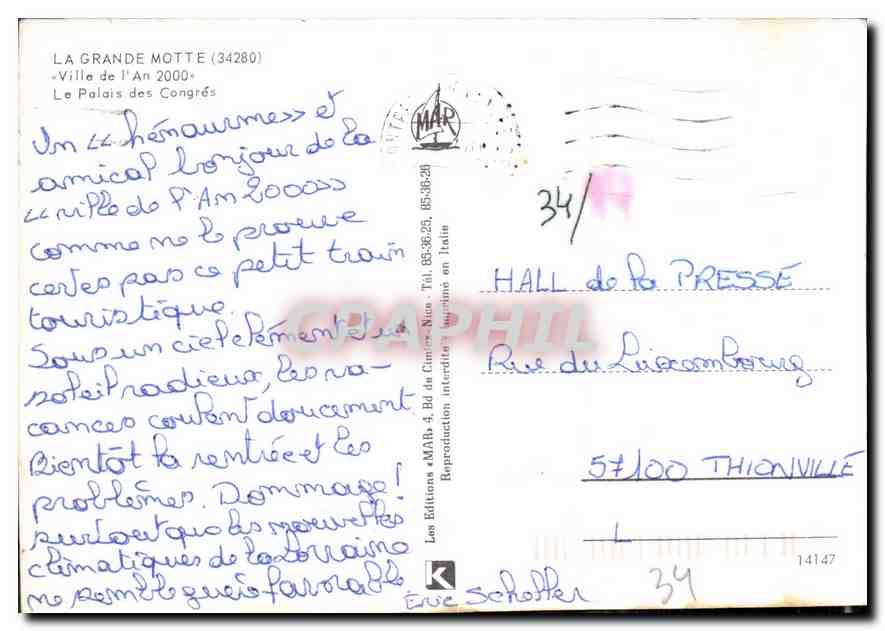 LA GRANDE MOTTE (34280)
«Ville de l'An 2000»
Le Palais des Congrés
Un « hénaurme » et
amical bonjour de la
« ville de l'An 2000 »
comme ne le prouve
certes pas ce petit train
touristique.
Sous un ciel clément et un
soleil radieux, les va-
cances coulent doucement.
Bientôt la rentrée et les
problèmes. Dommage !
surtout que les nouvelles
climatiques de la Lorraine
ne semble guère favorable
Éric Scholler
MAR
Les Editions «MAR» 4, Bd de Cimiez-Nice - Tél. 85-36-25, 85-36-26
Reproduction interdite - Imprimé en Italie
K
34/
HALL de la PRESSE
Rue du Luxembourg
57100 THIONVILLE
L
14147
34
CPAPHIL